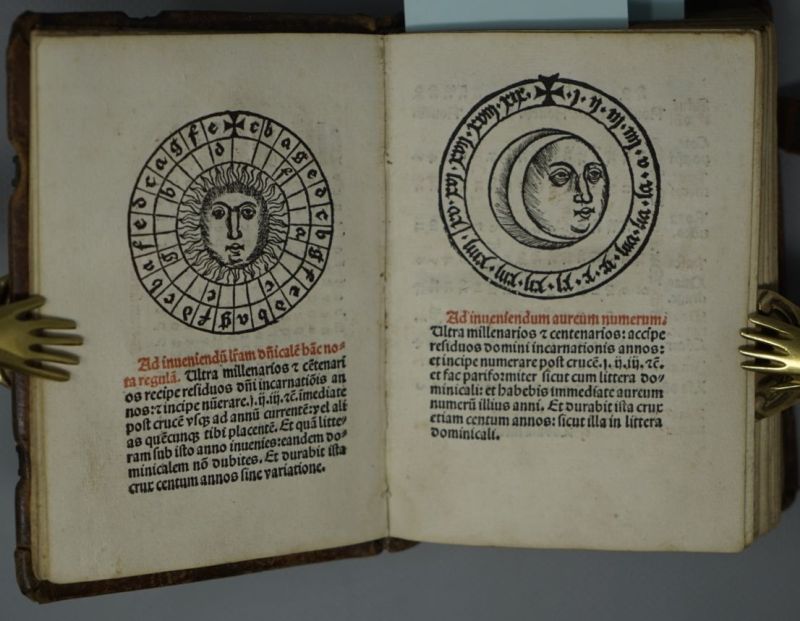 Ad inueniendũ lr̃am dñicalē hãc no-
ta regulã. Ultra millenarios ⁊ cētenari
os recipe residuos dñi incarnatiõis an
nos:⁊ incipe nũerare.j.ij.iij.⁊c̄.imediate
post crucē vsq̨ ad annũ currentē:vel ali
as quēcunq̨ tibi placentē. Et quã litte-
ram sub isto anno inuenies:eandem do-
minicalem nõ dubites. Et durabit ista
crux centum annos sine variatione.
j. ij. iij. iiij. v. vj. vij. viij. ix. x. xj. xij. xiij. xiiij. xv. xvj. xvij. xviij. xix.
Ad inueniendum aureum numerum:
Ultra millenarios ⁊ centenarios: accipe
residuos domini incarnationis annos:
et incipe numerare post crucē.j. ij. iij. ⁊c̄.
et fac pariformiter sicut cum littera do-
minicali: et habebis immediate aureum
numerũ illius anni. Et durabit ista crux
etiam centum annos: sicut illa in littera
dominicali.